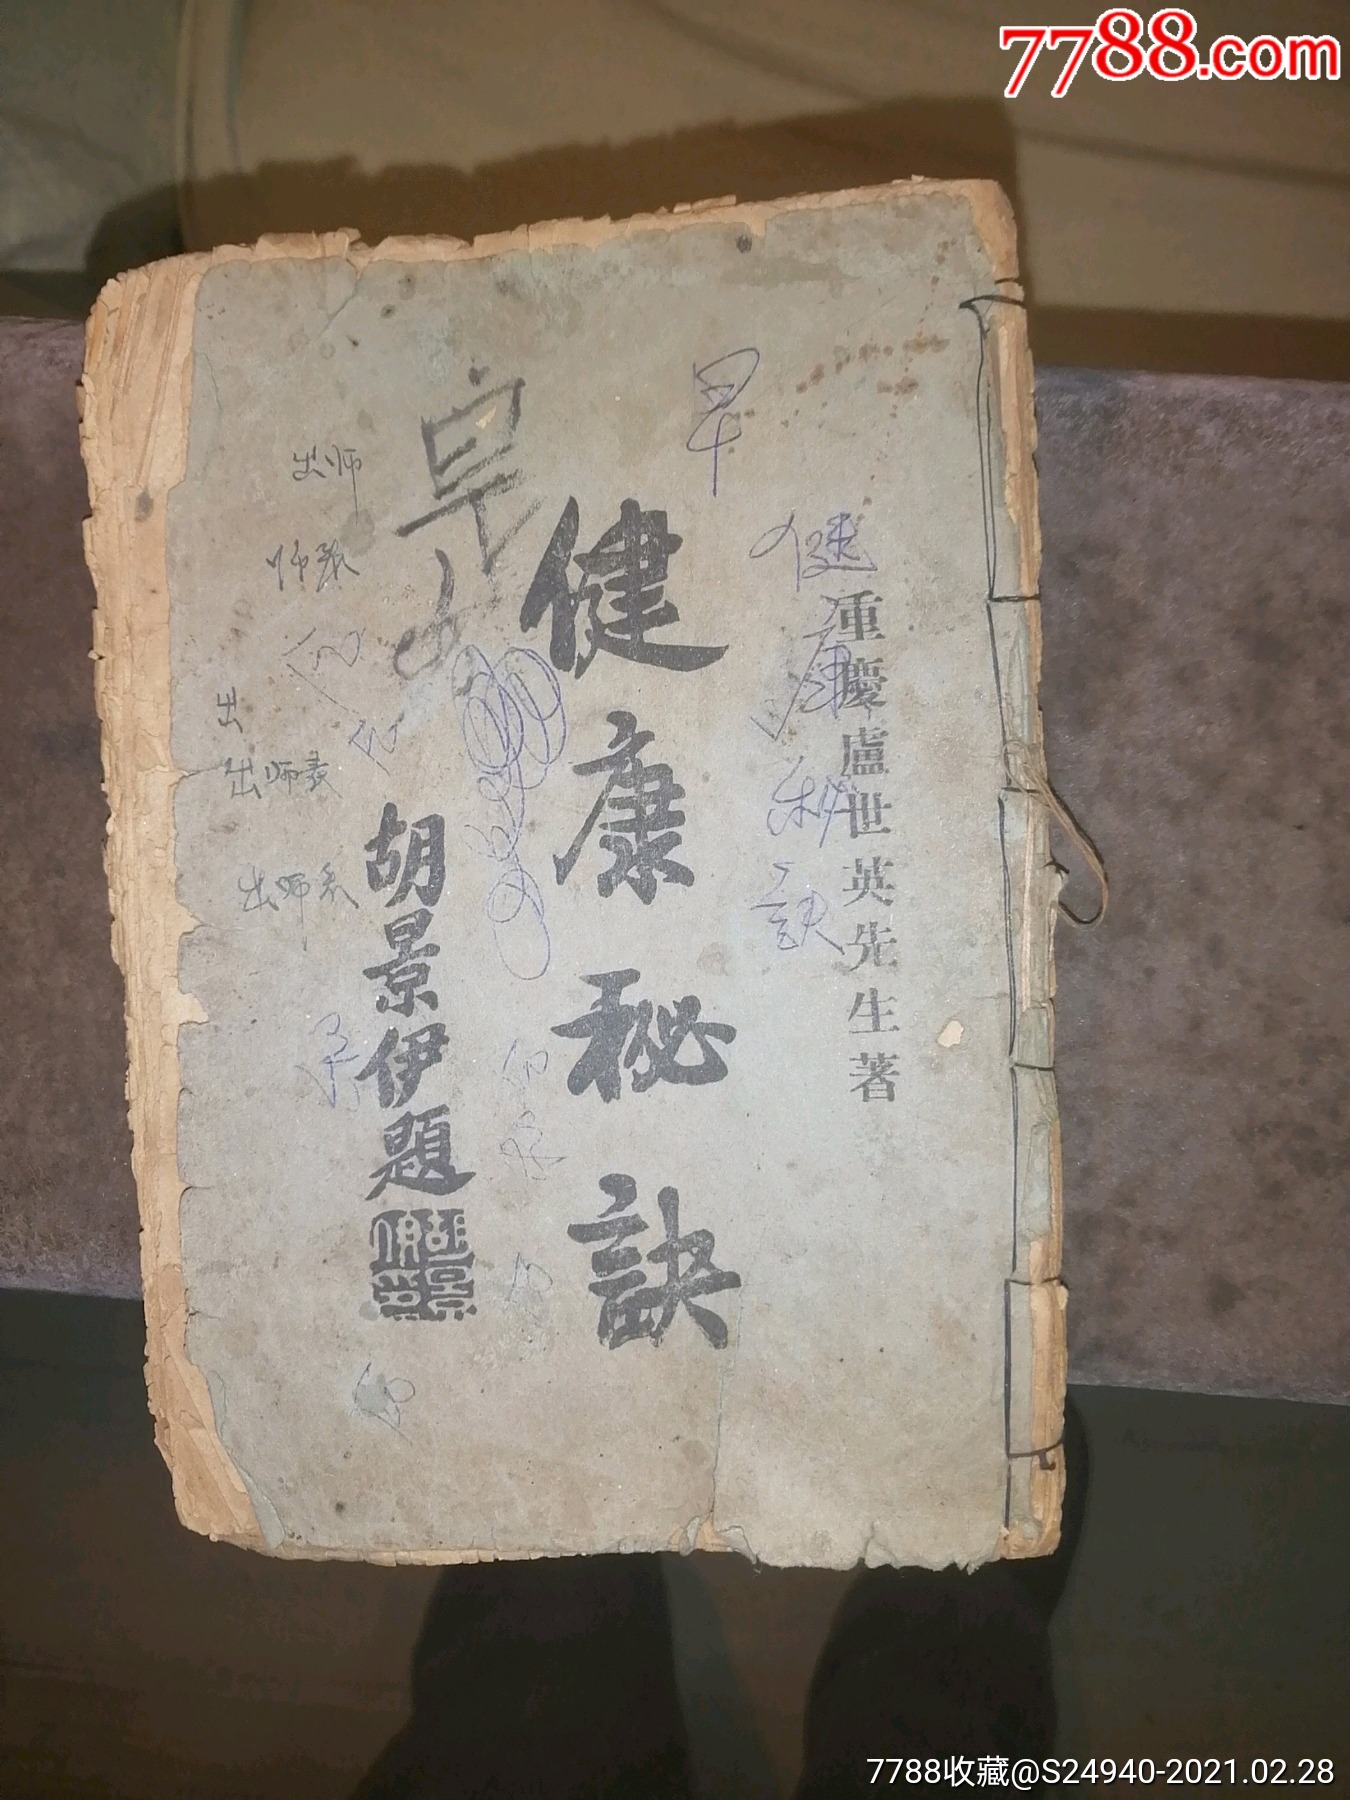 7788.com
重慶盧世英先生著
健康秘訣
胡景伊題
早
健
康
秘
訣
出师
师表
出
出师表
出师表
7788收藏@S24940-2021.02.28